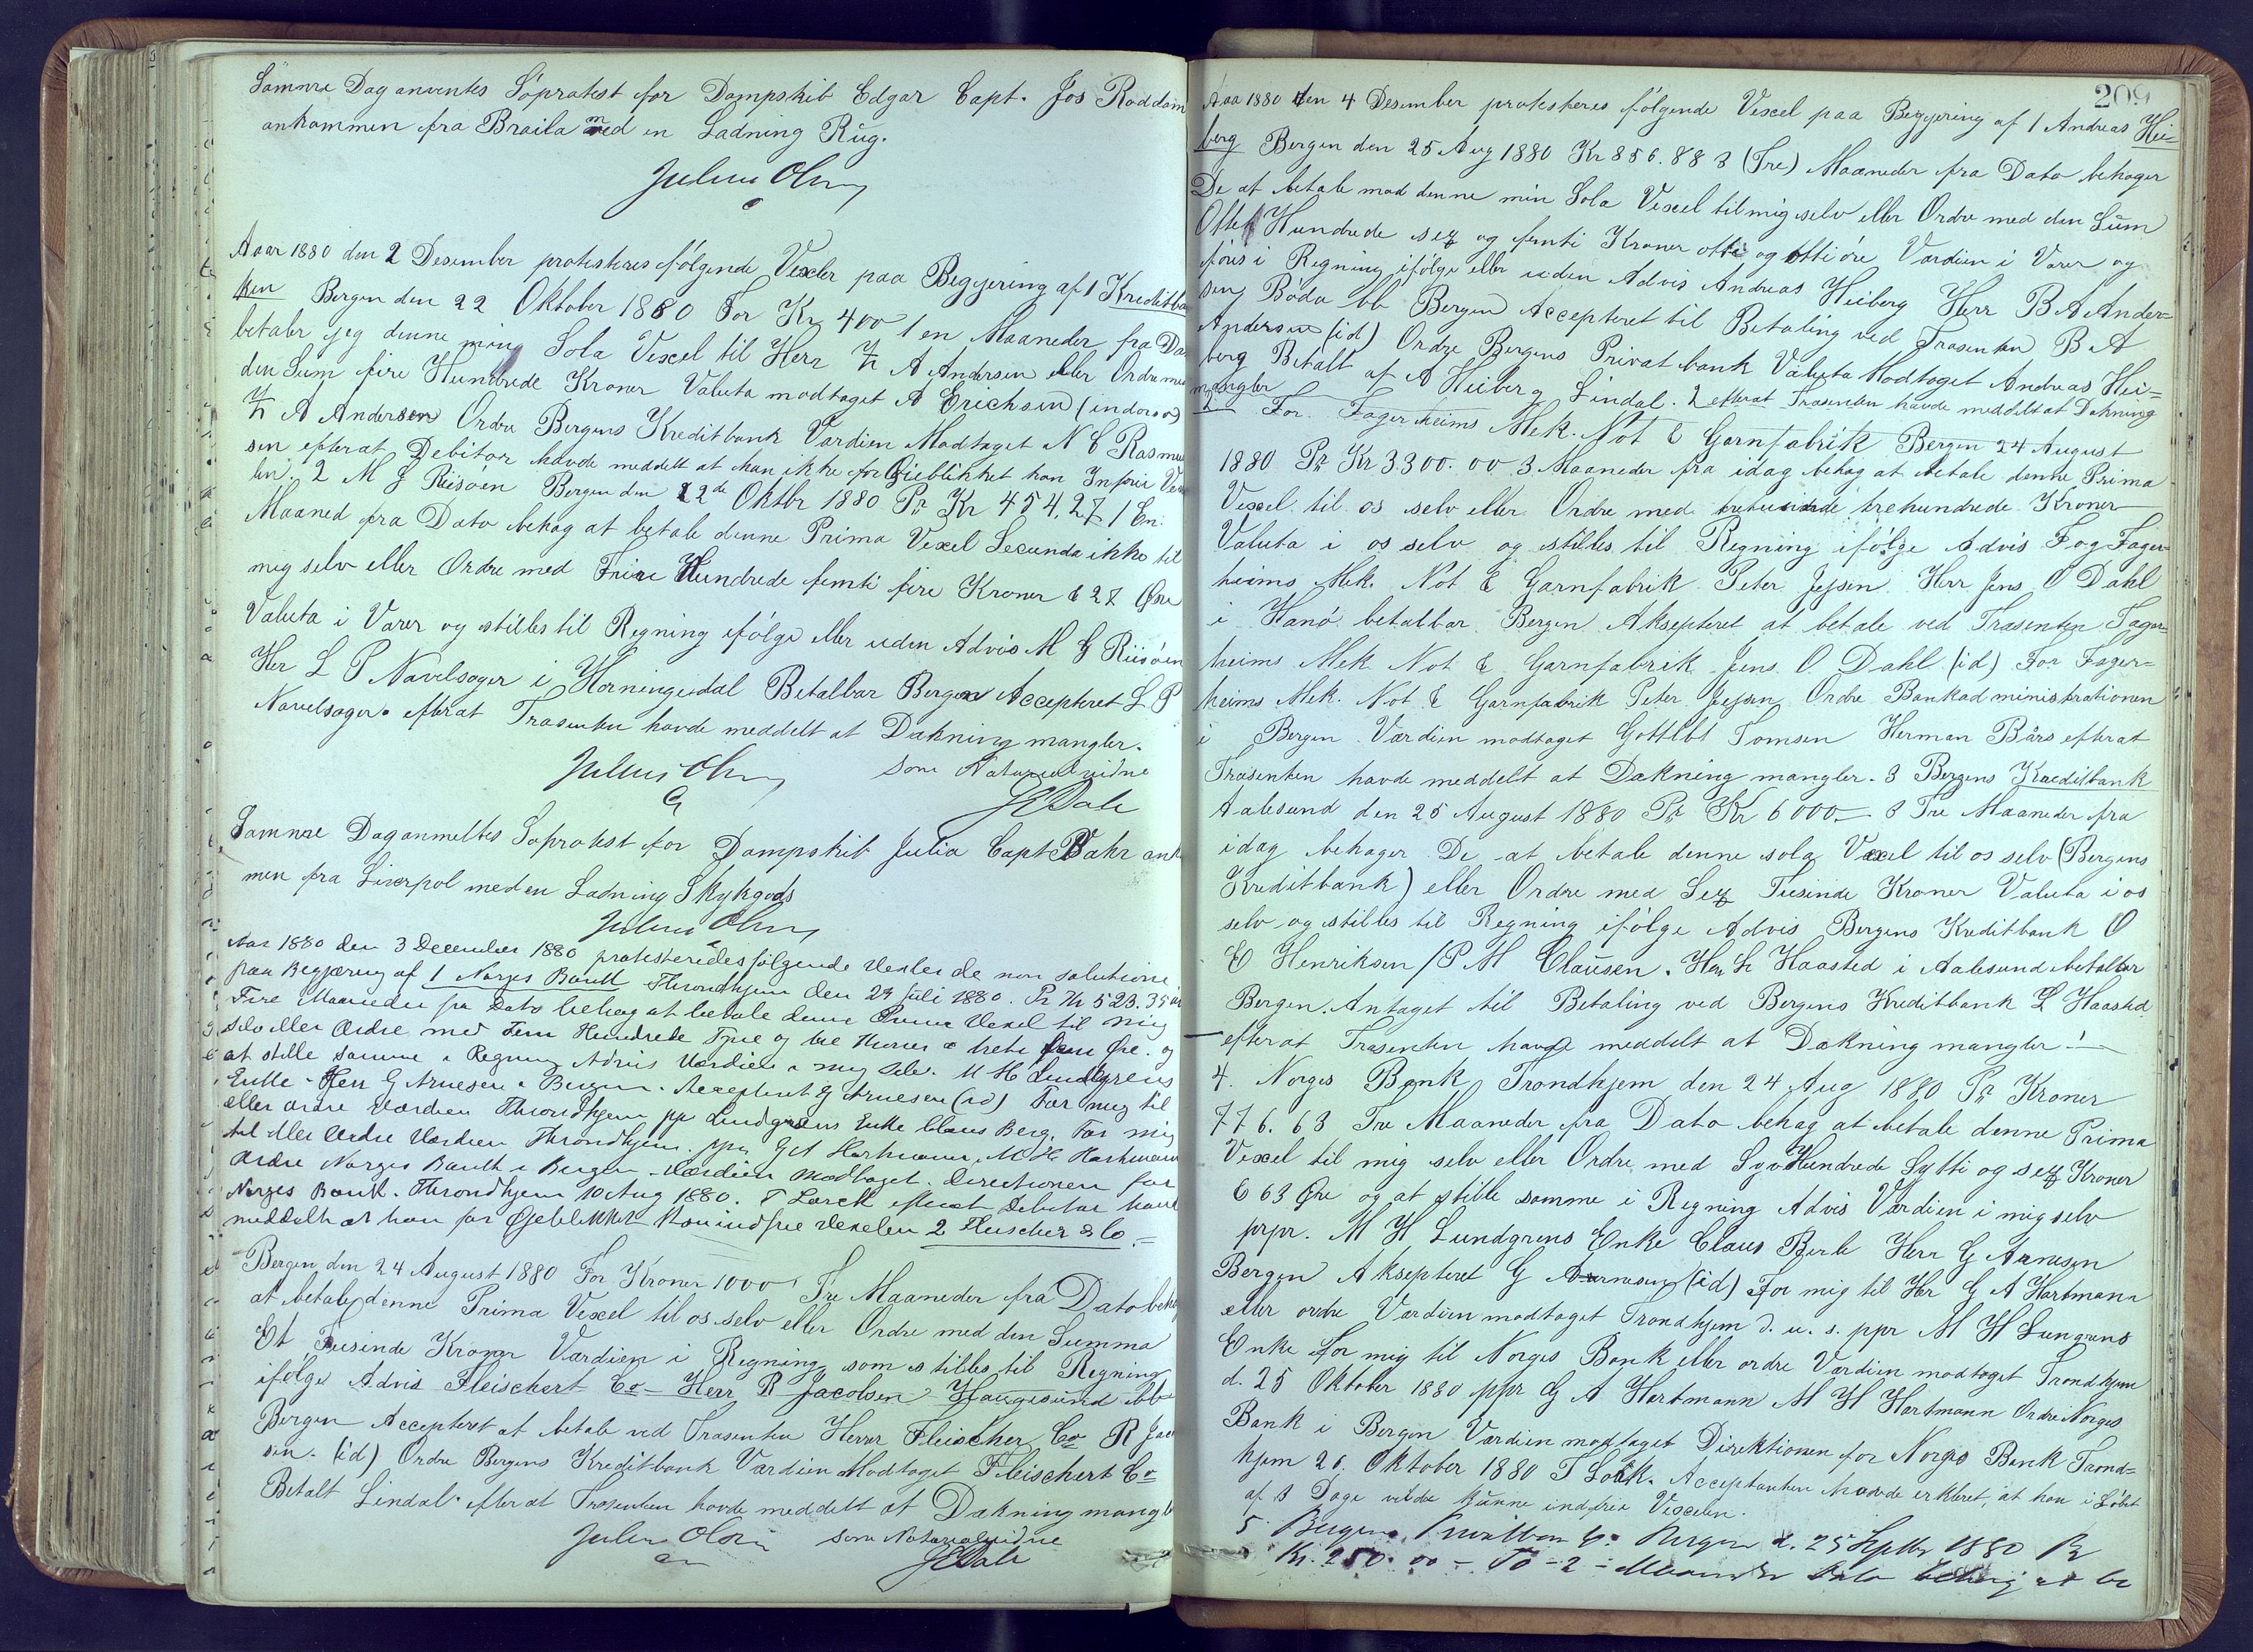 Samme Dag anmeltes Söprotest for Dampskib Edgar Capt. Jos Roddam
ankommen fra Braila med en Ladning Rug.
Julius Olsen
Aar 1880 den 2 Desember protesteres følgende Vexler paa Begjering af 1 Kreditban
ken Bergen den 22 Oktober 1880 For Kr 400 1 en Maaneder fra Da
betaler jeg denne min Sola Vexel til Herr A Andersen eller Ordre med
den Sum fire Hundrede Kroner Valuta modtaget A Erichsen (indorso)
A Andersen Ordre Bergens Kreditbank Værdien Modtaget N C Rasmus
sen efterat Debitor havde meddelt at han ikke for Øieblikket kan Infrie Vex
len. 2 M G Riisøen Bergen den 22de Oktbr 1880 Pr Kr 454,27 1 En
Maaned fra Dato behag at betale denne Prima Vexel Secunda ikke til
mig selv eller Ordre med Fire Hundrede femti fire Kroner & 27 Øre
Valuta i Varer og stilles til Regning ifølge eller uden Advis M G Riisøen
Her L P Navelsager i Horningsdal Betalbar Bergen Accepteret L P
Navelsager. efterat Trasenten havde meddelt at Dækning mangler.
Julius Olsen som Notarialvidne
J E Dale
Samme Dag anmeltes Søprotest for Dampskib Julia Capt Vahr ank
men fra Liverpol med en Ladning Stykgods
Julius Olsen
Aar 1880 den 3 December 1880 protesteredes følgende Vexler de non solutione
paa Begjæring af 1 Norges Bank Throndhjem den 29 Juli 1880. Pr Kr 523.35
Fire Maaneder fra Dato behag at betale denne Prima Vexel til mig
selv eller Ordre med Fem Hundrede Tyve og tre Kroner & treti fem Øre. og
at stille samme i Regning Advis Værdien i mig selv. M H Lundgrens
Enke - Herr G Arnesen i Bergen. Accepteret G Arnesen (id) For mig til
eller ordre Værdien Throndhjem pp Lundgrens Enke Claus Berg. For mig
til eller Ordre Værdien Throndhjem ppr G A Hartmann. M H Hartmann
Ordre Norges Bank i Bergen. Værdien modtaget. Directionen for
Norges Bank. Throndhjem 10 Aug 1880. T Lorck efterat Debitor havde
meddelt at han for Øieblikket Kan indfrie Vexelen 2 Fleischer & Co =
Bergen den 24 August 1880 For Kroner 1000 Tre Maaneder fra Dato behag
at betale denne Prima Vexel til os selv eller Ordre med den Summa
Et Tusinde Kroner Værdien i Regning som stilles til Regning
ifølge Advis Fleischer & Co - Herr R Jacobsen Haugesund bb
Bergen Accepteret at betale ved Trasenten Herrer Fleischer & Co R Jacob
sen. (id) Ordre Bergens Kreditbank Værdien Modtaget Fleischer & Co
Betalt Lindal. efterat Trasenten havde meddelt at Dækning mangler
Julius Olsen som Notarialvidne
J E Dale
209
Aaa 1880 den 4 Desember protesteres følgende Vexel paa Begjering af 1 Andreas Hei=
berg Bergen den 25 Aug 1880 Kr 856.88 3 (Tre) Maaneder fra Dato behager
De at betale mod denne min Sola Vexel til mig selv eller Ordre med den Sum
Otte Hundrede sex og femti Kroner otte og otti øre Værdien i Varer og
føres i Regning ifølge eller uden Advis Andreas Heiberg Herr B A Ander=
sen Bodø bb Bergen Accepteret til Betaling ved Trasenten B A
Andersen (id) Ordre Bergens Privatbank Valuta Modtaget Andreas Hei=
berg Betalt af A Heiberg Lindal. efterat Trasenten havde meddelt at Dækning
mangler
2 For Fagerheims Mek. Not & Garnfabrik Bergen 24 August
1880 Pr Kr 3300.00 3 Maaneder fra idag behag at betale denne Prima
Vexel til os selv eller Ordre med tretusinde trehundrede Kroner
Valuta i os selv og stilles til Regning ifølge Advis For Fager=
heims Mek. Not & Garnfabrik Peter Jepsen Herr Jens O Dahl
i Hanø betalbar Bergen Aksepteret at betale ved Trasenten Fager=
heims Mek Not & Garnfabrik Jens O Dahl (id) For Fager=
heims Mek. Not & Garnfabrik Peter Jepsen Ordre Bankadministrationen
i Bergen Værdien modtaget Gottlbl Tomsen Herman Bärs efterat
Trasenten havde meddelt at Dækning mangler. 3 Bergens Kreditbank
Aalesund den 25 August 1880 Pr Kr 6000 3 Tre Maaneder fra
idag behager De at betale denne sola Vexel til os selv (Bergens
Kreditbank) eller Ordre med Sex Tusinde Kroner Valuta i os
selv og stilles til Regning ifølge Advis Bergens Kreditbank O
E Henriksen / P M Clausen. Herr L Haasted i Aalesund betalbar
Bergen. Antaget til Betaling ved Bergens Kreditbank L Haasted
efterat Trasenten havde meddelt at Dækning mangler!
4. Norges Bank Trondhjem den 24 Aug 1880 Pr Kroner
776.63 Tre Maaneder fra Dato behag at betale denne Prima
Vexel til mig selv eller Ordre med Syv Hundrede Sytti og sex Kroner
& 63 Øre og at stille samme i Regning Advis Værdien i mig selv
prpr. M H Lundgrens Enke Claus Berle Herr G Arnesen
Bergen Aksepteret G Arnesen (id) For mig til Her G A Hartmann
eller ordre Værdien modtaget Trondhjem d. u. s. ppr M H Lungrens
Enke For mig til Norges Bank eller ordre Værdien modtaget Trondhjem
d. 25 Oktober 1880 ppr G A Hartmann M H Hartmann Ordre Norges
Bank i Bergen Værdien modtaget Direktionen for Norges Bank Trond=
hjem 26. Oktober 1880 T Lorck. Acceptanten havde erkleret, at han i Løbet
af 3 Dage vilde kunne indfrie Vexelen.
5. Bergens Kreditbank Bergen d. 25 Septbr 1880 Pr
Kr. 250.00 - To - 2 - Maaneder Dato behag at be